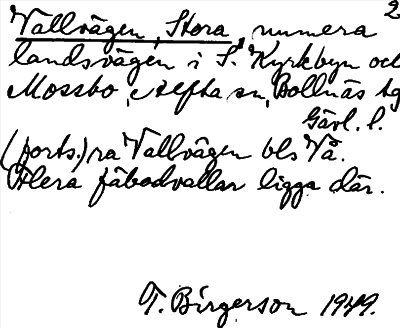 2
Vallvägen, Stora, numera
landsvägen i S. Kyrkbyn och
Mossbo, Alfta sn, Bollnäs tg
Gävl. l.
(forts.) ra Vallvägen bls Vå.
Flera fäbodvallar ligga där.
T. Birgerson 1949.